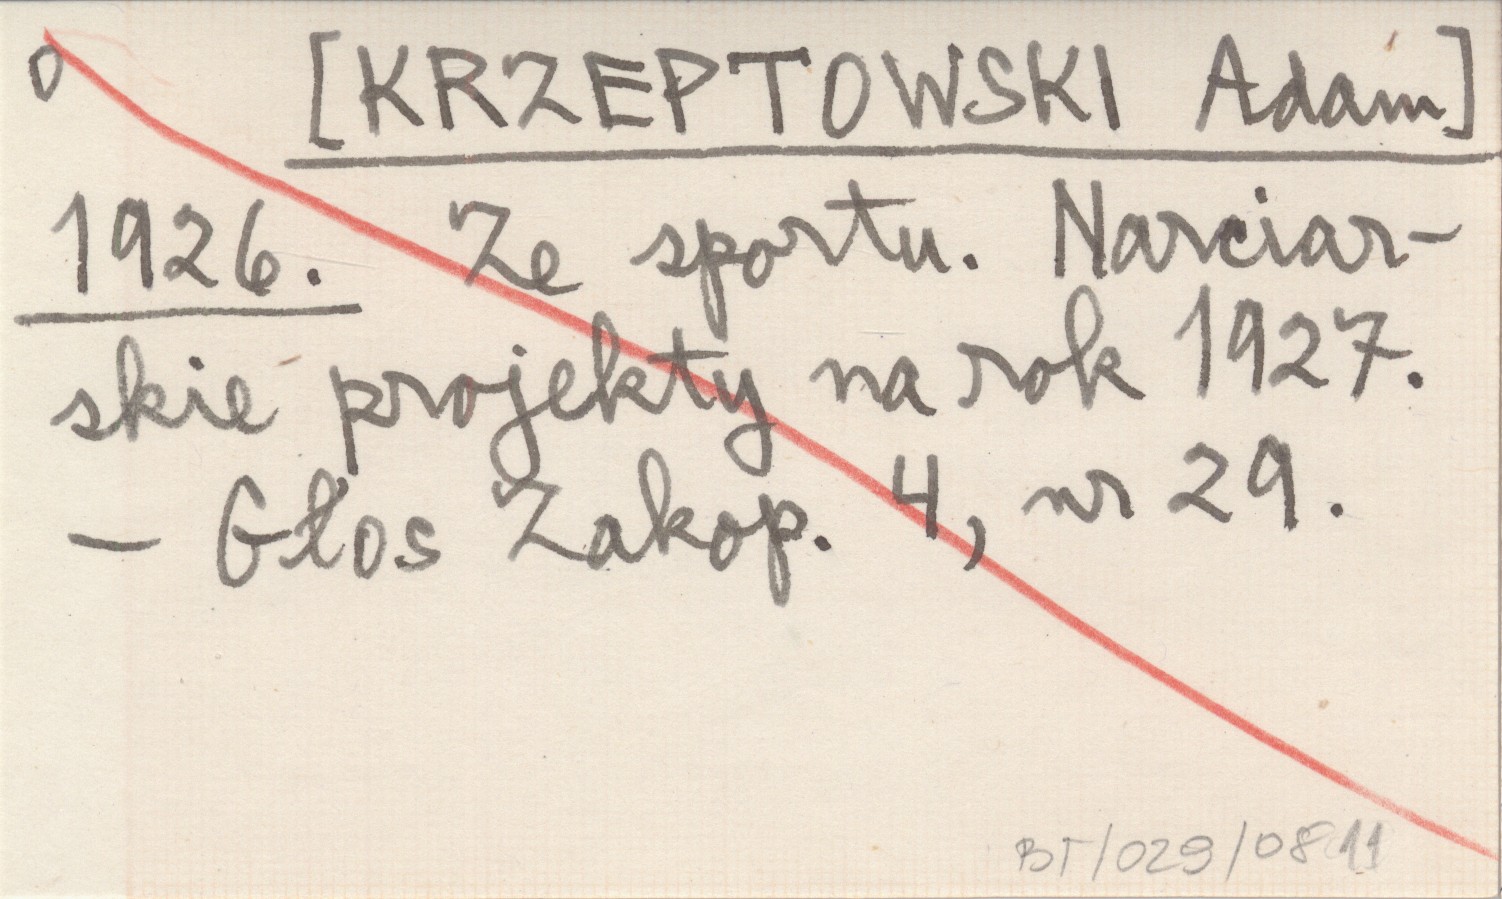 0 [KRZEPTOWSKI Adam]
1926. Ze sportu. Narciar-
skie projekty na rok 1927.
- Głos Zakop. 4, nr 29.
BT/029/0811